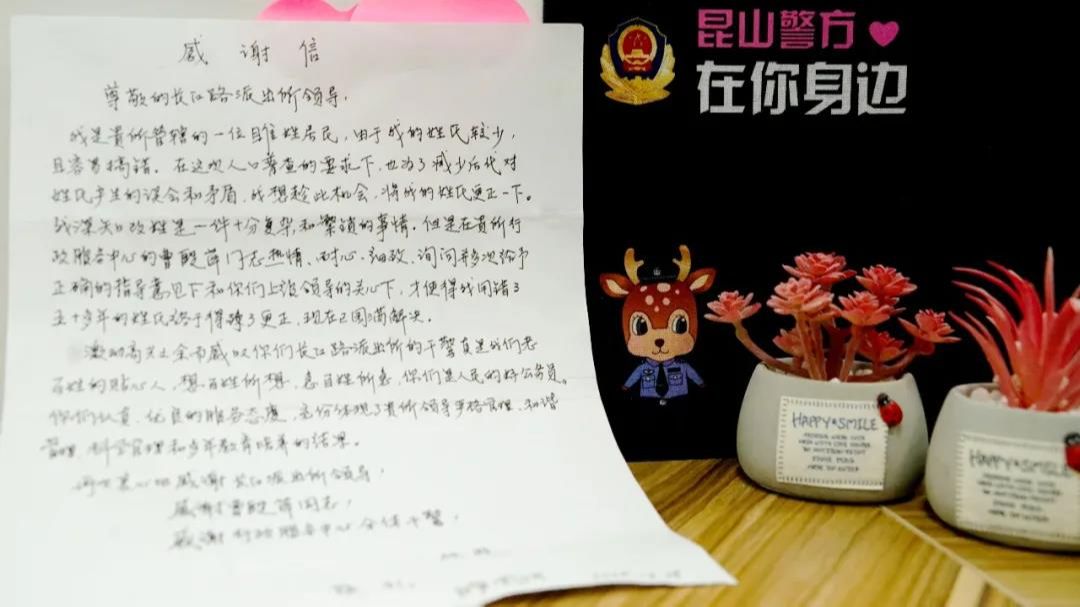 感谢信
尊敬的长江路派出所领导,
我是贵所管辖的一位目隹姓居民,由于我的姓氏较少,
且容易搞错。在这次人口普查的要求下,也为了减少后代对
姓氏产生的误会和矛盾,我想趁此机会,将我的姓氏更正一下。
我深知改姓是一件十分复杂和繁锁的事情。但是在贵所行
政服务中心的曹殷萍同志热情、耐心、细致、询问并多次给予
正确的指导意见下和你们上级领导的关心下,才使得我用错了
五十多年的姓氏终于得到了更正,现在已圆满解决。
激动高兴之余而感叹你们长江路派出所的干警真是我们老
百姓的贴心人,想百姓所想,急百姓所急,你们是人民的好公务员。
你们认真、优良的服务态度,充份体现了贵所领导严格管理、和谐
管理、科学管理和多年教育培养的结果。
再次衷心地感谢长江派出所领导,
感谢曹殷萍同志,
感谢行政服务中心全体干警,
昆山警方
在你身边
HAPPY SMILE
HAPPY SMILE